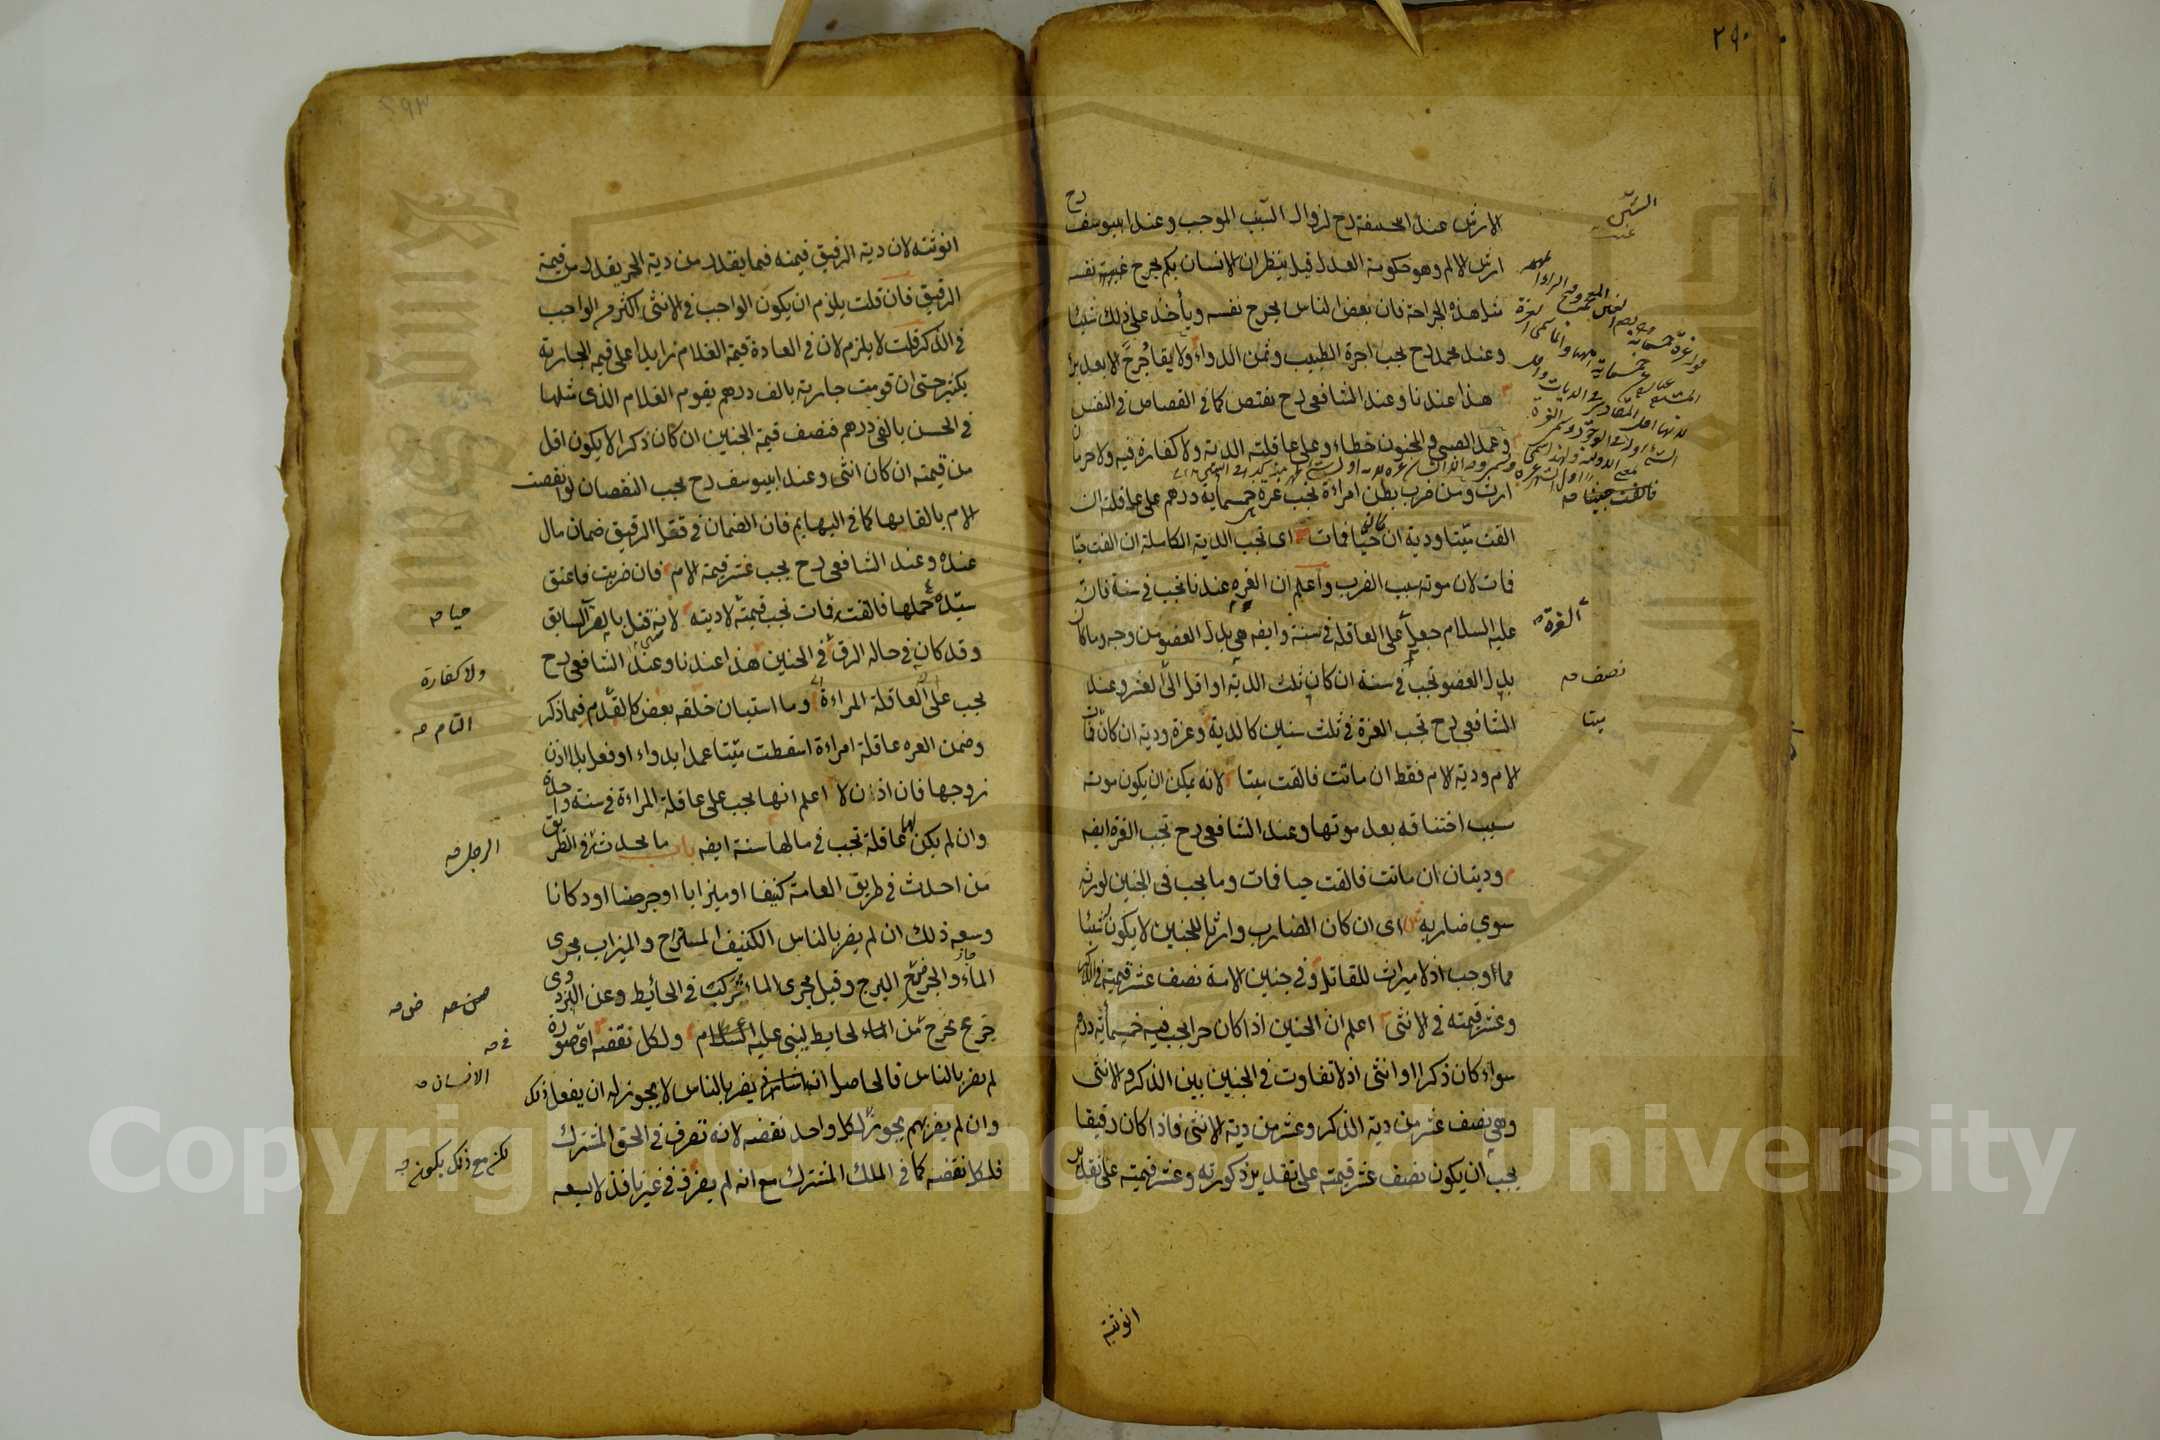 ٢٩٠
الارش عند ابي حنيفة رح لزوال السبب الموجب وعند ابيوسف رح
ارش الالم وهو حكومة العدل قيل ينظر ان الانسان بكم يجرح نفسه
مثل هذه الجراحة فان بعض الناس يجرح نفسه ويأخذ على ذلك شيئا
وعند محمد رح يجب اجرة الطبيب وثمن الدواء ولا يقاد جرح الا بعد برء
هذا عندنا وعند الشافعي رح يقتص كما في القصاص في النفس
وعمد الصبي والمجنون خطاء وعلى عاقلته الدية ولا كفارة فيه ولا حرمان
ارث ومن ضرب بطن امراءة تجب غرة خمسماية درهم على عاقلته ان
القت ميتا ودية ان كان حيا فمات اى تجب الدية الكاملة ان القت حيا
فمات لان موته بسبب الضرب واعلم ان الغره عندنا تجب في سنة فانه
عليه السلام جعل على العاقلة في سنة وايضه هي بدل العضو من وجه وما كان
بدل العضو تجب في سنة ان كان ثلث الدية او اقل الى العشر وعند
الشافعي رح تجب الغرة في ثلث سنين كالدية وغرة ودية ان كان فماتت
الام ودية الام فقط ان ماتت فالقت ميتا لانه يمكن ان يكون موته
بسبب اختناقه بعد موتها وعند الشافعي رح تجب الغرة ايضه
وديتان ان ماتت فالقت حيا فمات وما يجب في الجنين لورثته
سوى ضاربه ش اى ان كان الضارب وارثا للجنين لا يكون له شيئا
مما وجب اذ لا ميراث للقاتل وفي جنين الامة نصف عشر قيمته في الذكر
وعشر قيمته في الانثى اعلم ان الجنين اذا كان حرا يجب فيه خمسمائة درهم
سواء كان ذكرا او انثى اذ لا تفاوت في الجنين بين الذكر والانثى
وهي نصف عشر من دية الذكر وعشر من دية الانثى فاذا كان رقيقا
يجب ان يكون نصف عشر قيمته على تقدير ذكورته وعشر قيمته على تقدير
انوثته
السن
عند
فالقت جنينا صه
الغرة صه
نصف صه
ميتا
انوثته لان دية الرقيق قيمته فما يقدر من دية الحر يقدر من قيمة
الرقيق فان قلت يلزم ان يكون الواجب في الانثى اكثر من الواجب
في الذكر قلت لا يلزم لان في العادة قيمة الغلام زايدا على قيمة الجارية
بكثير حتى ان قومت جارية بالف درهم يقوم الغلام الذى مثلها
في الحسن بالفى درهم فنصف قيمة الجنين ان كان ذكرا لا يكون اقل
من قيمته ان كان انثى وعند ابيوسف رح يجب النقصان لو انقصت
الام بالقائها كما في البهايم فان الضمان في قتل الرقيق ضمان مال
عنده وعند الشافعي رح يجب عشر قيمة الام فان ضربت فاعتق
سيده حملها فالقته فمات تجب قيمته لا ديته لانه قتل بالضرب السابق
وقد كان في حالة الرق في الجنين هذا عندنا وعند الشافعي رح
يجب على العاقلة المراءة وما استبان خلقه بعض كالقدم فيما ذكر
وضمن الغره عاقلة امراءة اسقطت ميتا عمدا بدواء او فعل بلا اذن
زوجها فان اذن لا اعلم انها يجب على عاقلة المراءة في سنة واحدة
وان لم يكن لها عاقلة تجب في مالها سنة ايضه باب ما يحدث في الطريق
من احدث في طريق العامة كنيفا او ميزابا او جرصنا او دكانا
وسعه ذلك ان لم يضر بالناس الكنيف المستراح والميزاب مجرى
الماء والجرصن البرج وقيل مجرى الماء مركب في الحائط وعن البزدوى
جزع يخرج من الحايط ليبنى عليه ولكل نقضه اى صورة
لم يضر بالناس فالحاصل انه يضر بالناس لا يجوز له ان يفعل ذلك
وان لم يضر بهم يجوز لكل واحد نقضه لانه تصرف في الحق المشترك
فلكل نقضه كما في الملك المشترك مع انه لم يضر وفي غير نافذ لا يسعه
حيا صه
ولا كفارة
التام صه
الرجل صه
في صه
الانسان صه
لكنه مع ذلك يكون